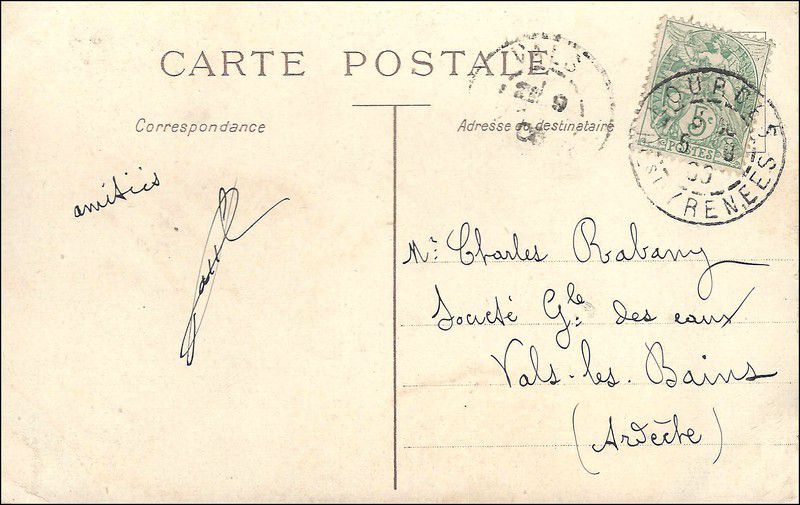 CARTE POSTALE
Correspondance
Adresse du destinataire
amitiés
Mr. Charles Rabany
Société Gle des eaux
Vals-les-Bains
(Ardèche)
VALS
9
POSTES
5
PYRENEES